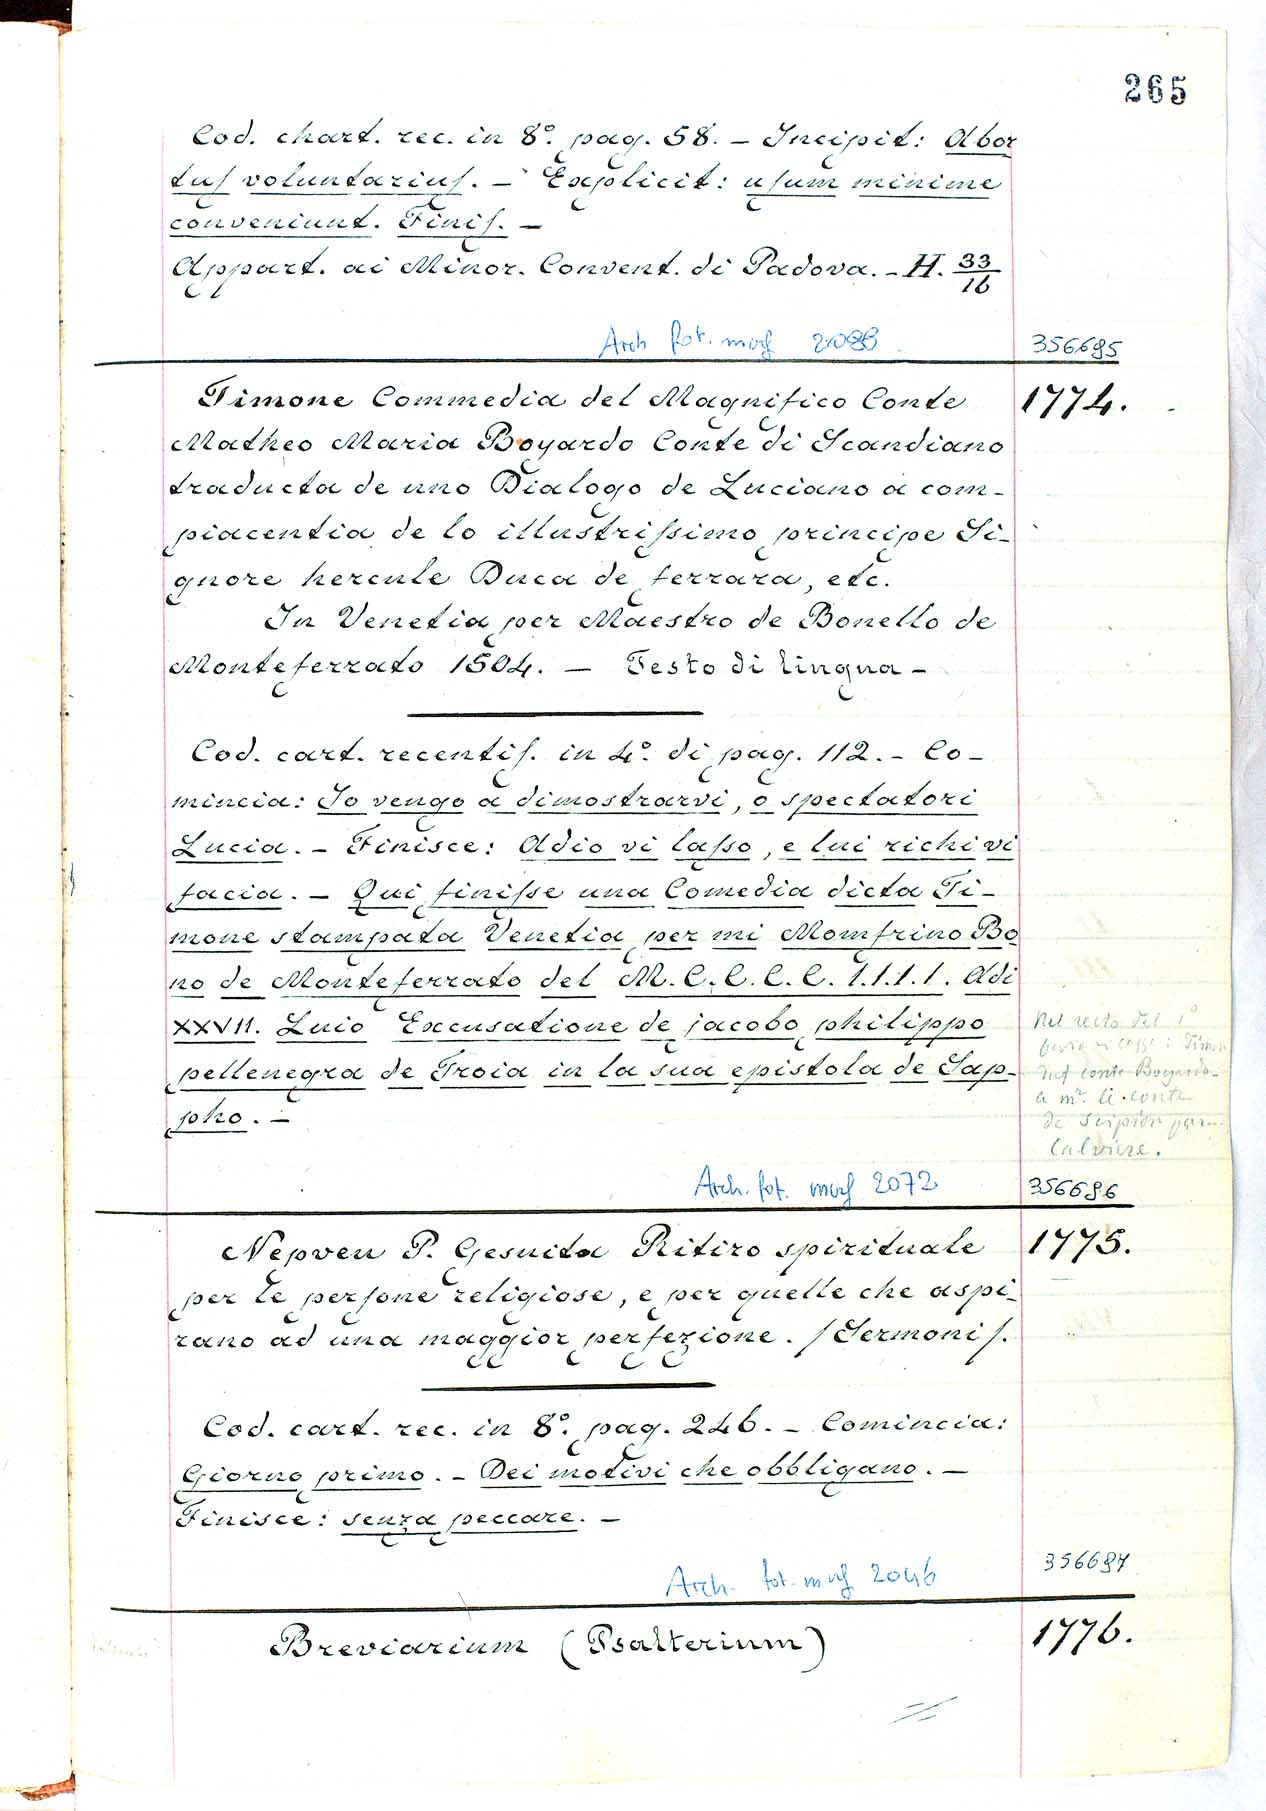 265
Cod. chart. rec. in 8º. pag. 58. – Incipit: Abor
tuſ voluntariuſ. – Explicit: uſum minime
conveniunt. Finiſ. –
Appart. ai Minor. Convent. di Padova. – H. 33/16
Arch fot. marc 2088
356695
Timone Commedia del Magnifico Conte
1774.
Matheo Maria Boyardo Conte di Scandiano
traducta de uno Dialogo de Luciano a com-
piacentia de lo illustriſsimo principe Si-
gnore hercule Duca de ferrara, etc.
In Venetia per Maestro de Bonello de
Monteferrato 1504. – Testo di lingua –
Cod. cart. recentiſ. in 4º. di pag. 112. – Co-
mincia: Io vengo a dimostrarvi, o spectatori
Lucia. – Finisce: Adio vi laſso, e lui richi vi
facia. – Qui finiſse una Comedia dicta Ti-
mone stampata Venetia per mi Momfrino Bo
no de Monteferrato del M.C.C.C.C.1.1.1.1. Adi
XXVII. Luio Excusatione de jacobo philippo
pellenegra de Troia in la sua epistola de Sap-
pho. –
Nel recto del 1º
Timon
conte Boyardo
a mr. li conte
de Scipion
Calviere.
Arch. fot. marc 2072
356696
Nepveu P. Gesuita Ritiro spirituale
1775.
per le perſone religiose, e per quelle che aspi-
rano ad una maggior perfezione. / Sermoni /.
Cod. cart. rec. in 8º. pag. 246. – Comincia:
Giorno primo. – Dei motivi che obbligano. –
Finisce: senza peccare. –
Arch. fot. marc 2046
356697
Breviarium (Psalterium)
1776.